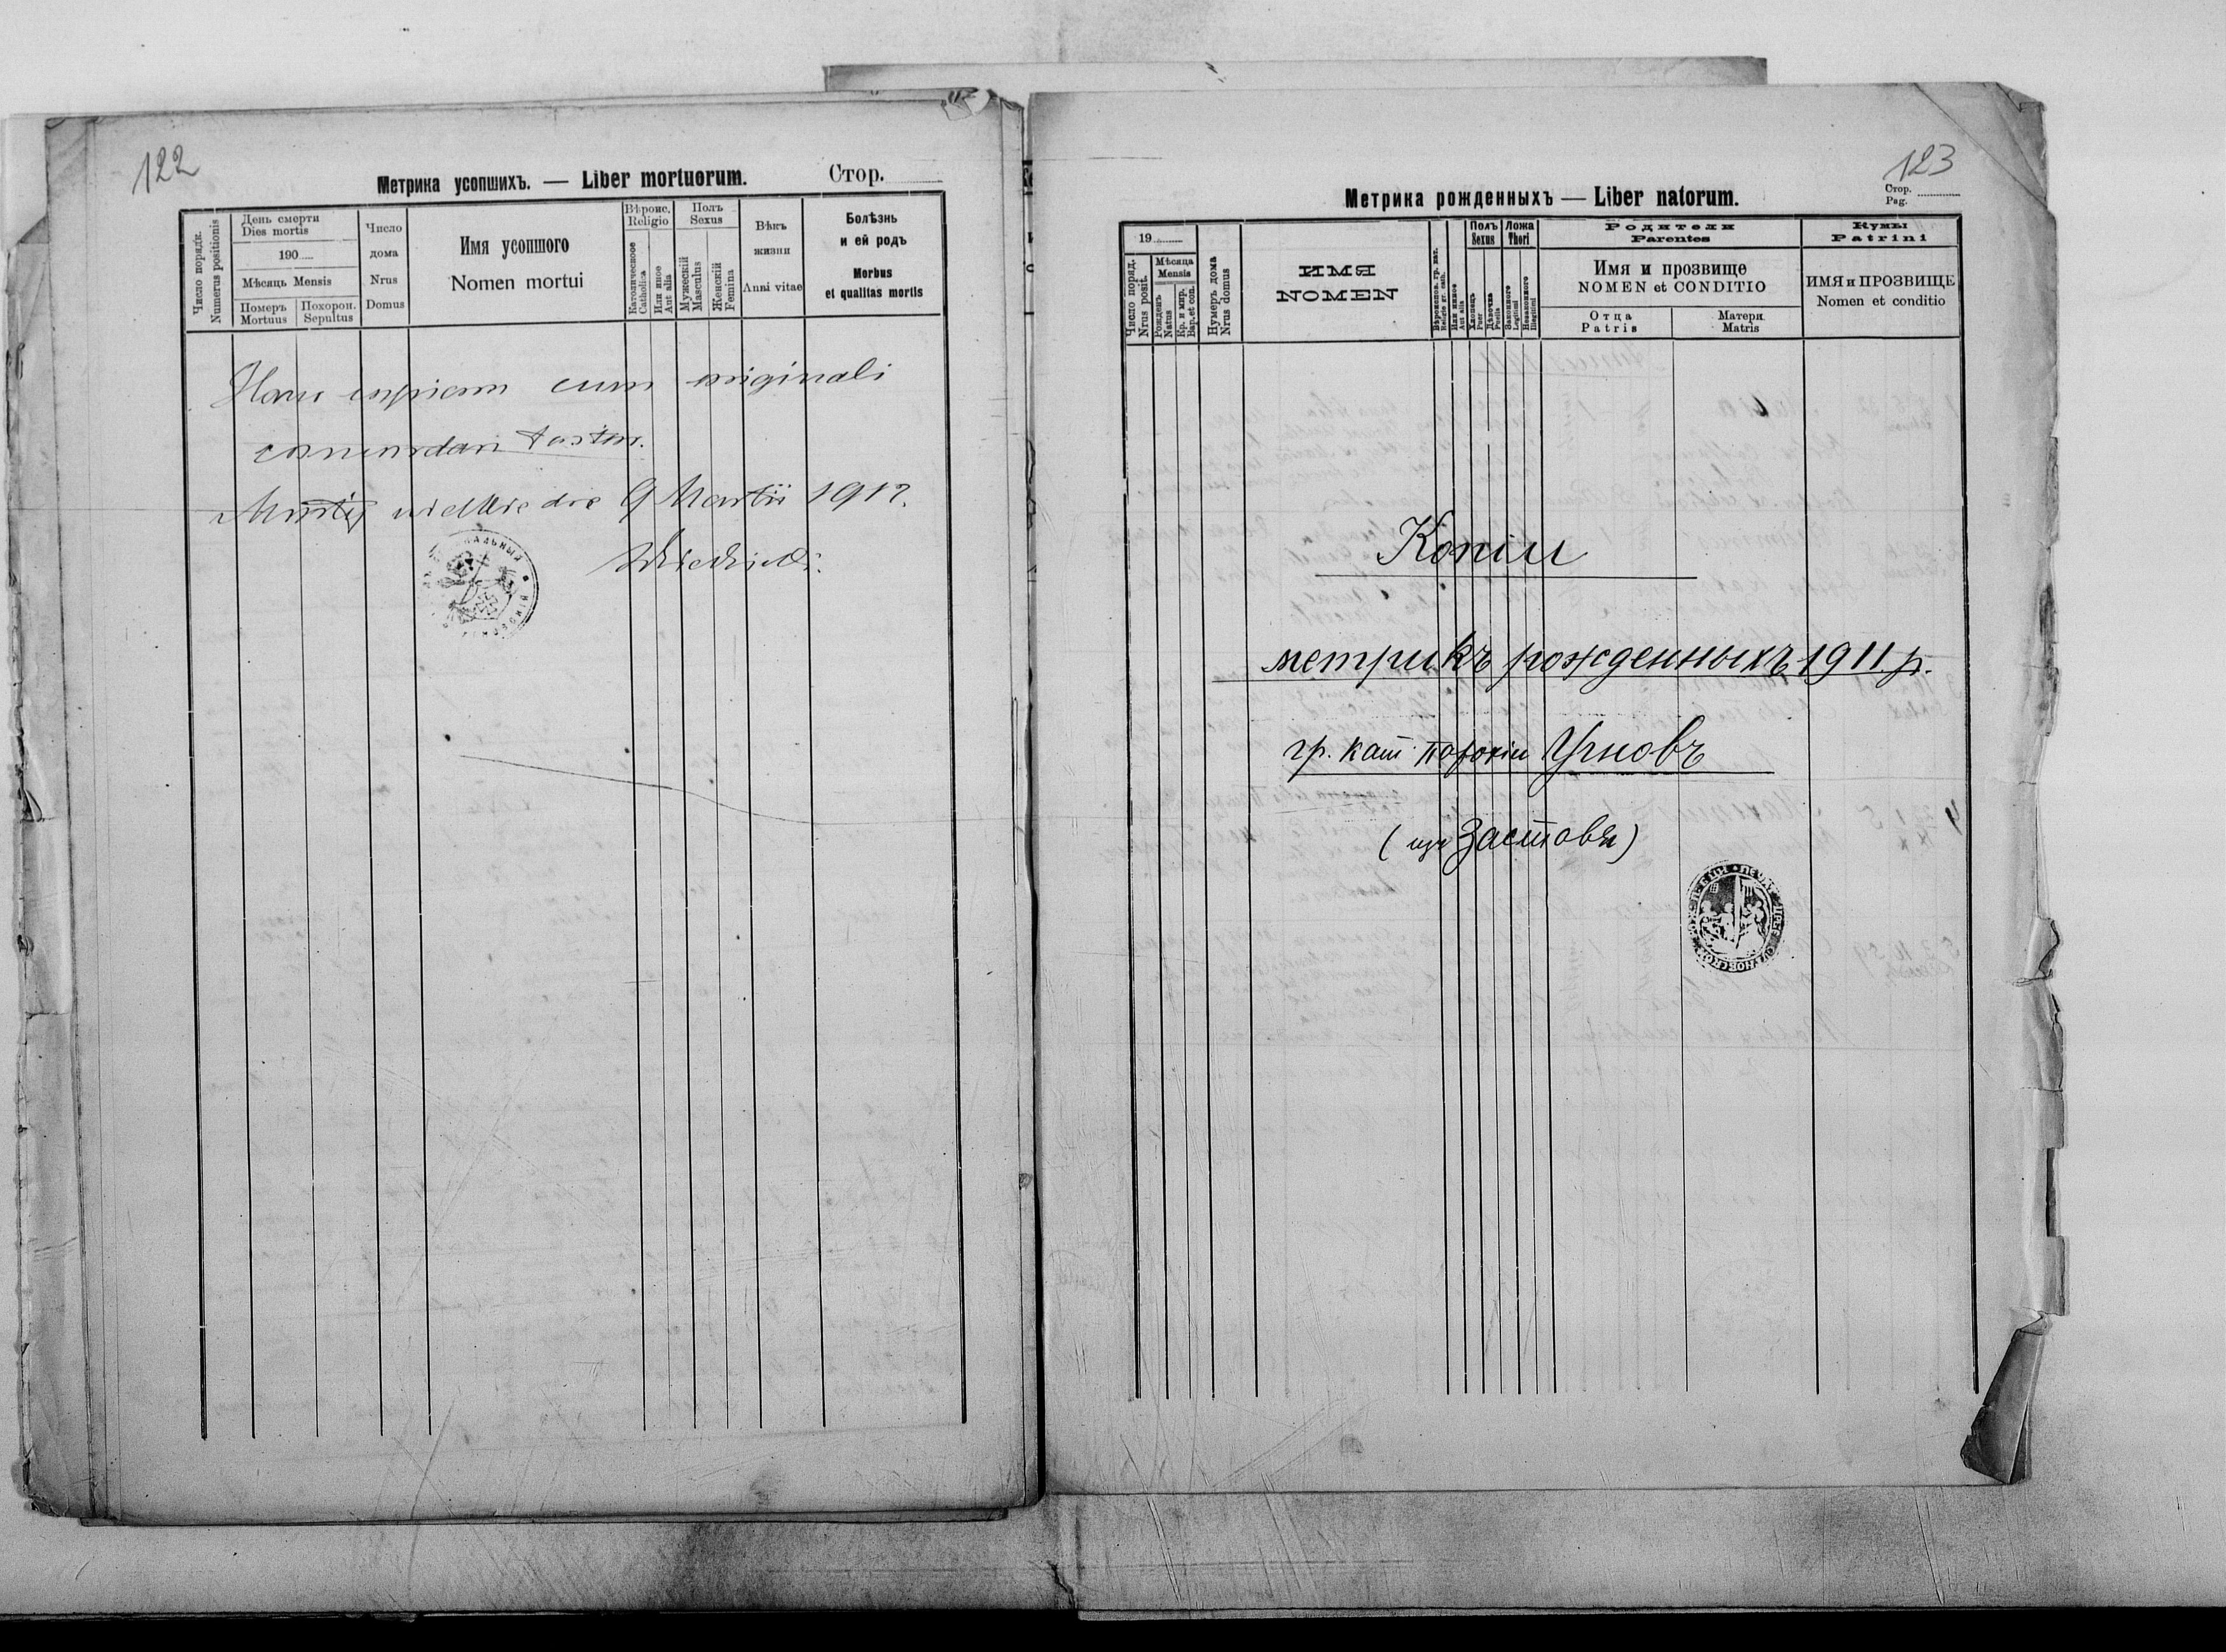 122
Метрика усопшихъ. — Liber mortuorum.
Стор.
Число порядк.
Numerus positionis
День смерти
Dies mortis
190
Мѣсяць Mensis
Померъ
Mortuus
Похорон.
Sepultus
Число
дома
Nrus
Domus
Имя усопшого
Nomen mortui
Вѣроис.
Religio
Католическое
Catholica
Или иное
Aut alia
Полъ
Sexus
Мужескій
Masculus
Женскій
Femina
Вѣкъ
жизни
Anni vitae
Болѣзнь
и ей родъ
Morbus
et qualitas mortis
Hanc copiam cum originali
concordare testor.
die 9 Martii 1912.
123
Стор.
Pag.
Метрика рожденныхъ — Liber natorum.
19
Число поряд.
Nrus posit.
Мѣсяца
Mensis
Рожденъ
Natus
Кр. и мир.
Bap. et con.
Нумеръ дома
Nrus domus
ИМЯ
NOMEN
Или инное
Aut alia
Полъ
Sexus
Хлопець
Puer
Дѣвочка
Puella
Ложа
Thori
Законного
Legitimi
Незаконного
Illegitimi
Родители
Parentes
Имя и прозвище
NOMEN et CONDITIO
Отца
Patris
Матери
Matris
Кумы
Patrini
ИМЯ и ПРОЗВИЩЕ
Nomen et conditio
Копіи
метрикъ рожденныхъ 1911 р.
гр. кат парохіи Угновъ
(изъ Заставья)